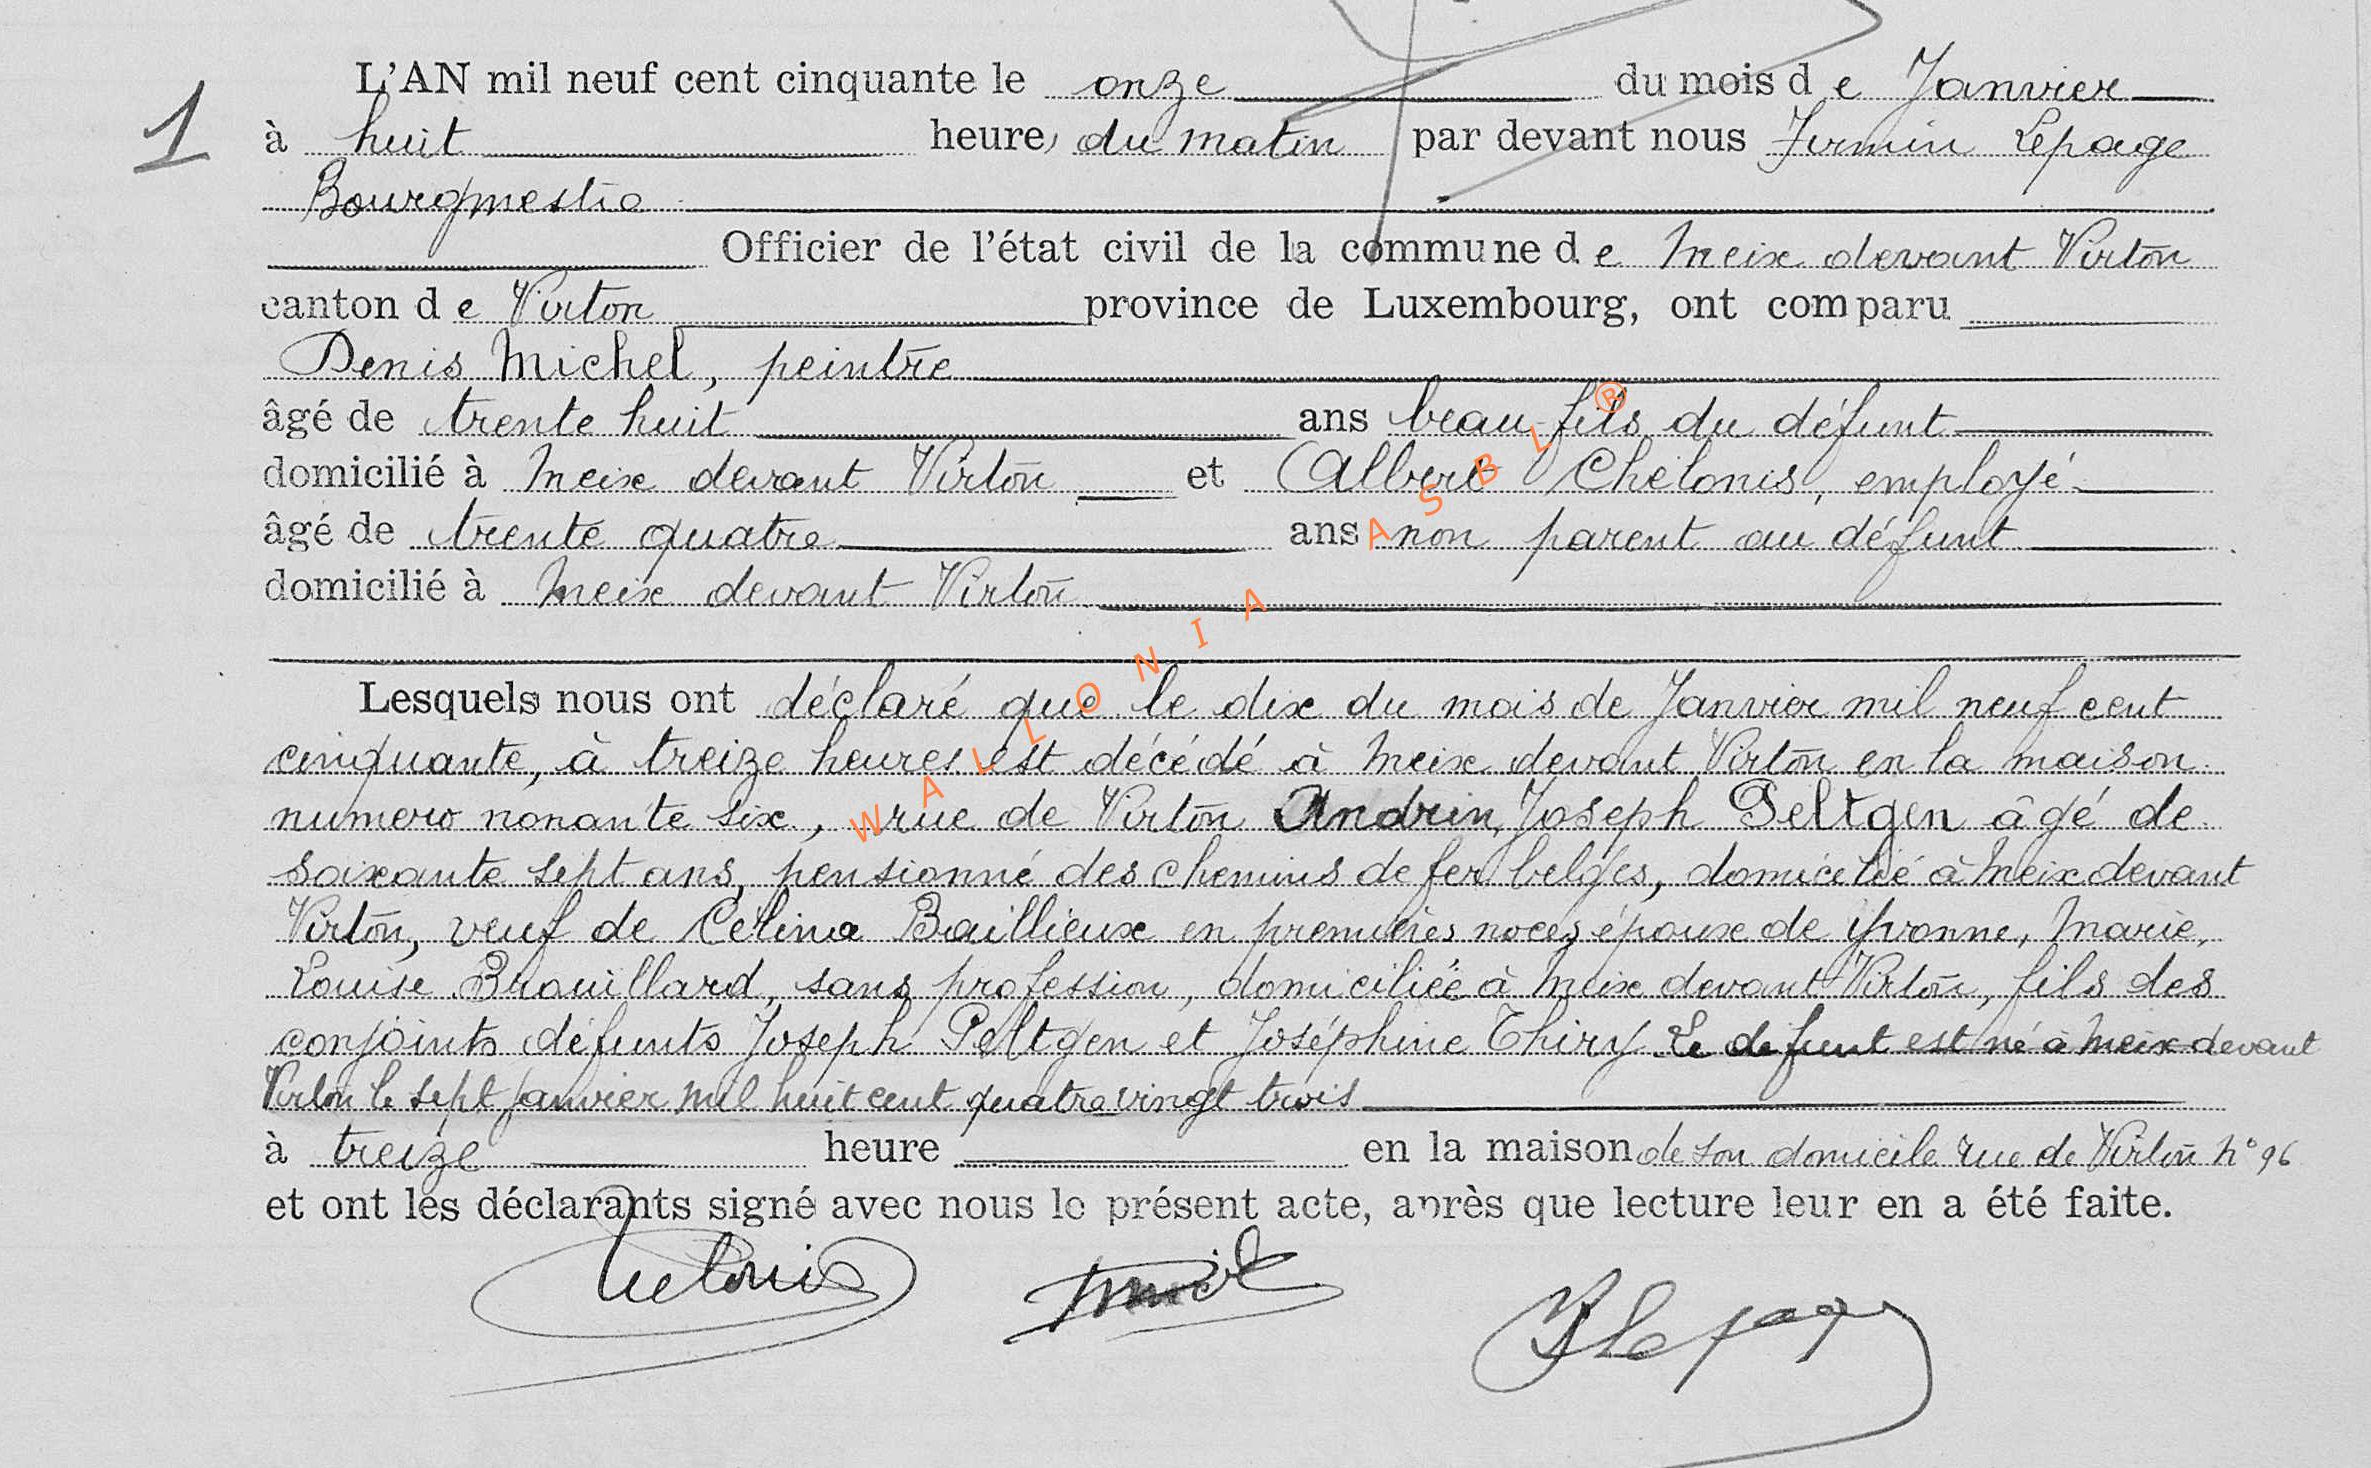 1
L'AN mil neuf cent cinquante le onze du mois d e Janvier
à huit heures du matin par devant nous Firmin Lepage
Bourgmestre
Officier de l'état civil de la commune d e Meix devant Virton
canton d e Virton province de Luxembourg, ont comparu
Denis Michel, peintre
âgé de trente huit ans beau-fils du défunt
domicilié à Meix devant Virton et Albert Chelonis, employé
âgé de trente quatre ans non parent au défunt
domicilié à Meix devant Virton
Lesquels nous ont déclaré que le dix du mois de Janvier mil neuf cent
cinquante, à treize heures est décédé à Meix devant Virton en la maison
numero nonante six, rue de Virton Andrien, Joseph Peltgen âgé de
soixante sept ans, pensionné des chemins de fer belges, domicilié à Meix devant
Virton, veuf de Célina Baillieux en premières noces, époux de Yvonne, Marie,
Louise Brouillard, sans profession, domiciliée à Meix devant Virton, fils des
conjoints défunts Joseph Peltgen et Joséphine Thiry. Le défunt est né à Meix devant
Virton le sept janvier mil huit cent quatre vingt trois
à treize heure en la maison de son domicile rue de Virton n° 96
et ont les déclarants signé avec nous le présent acte, après que lecture leur en a été faite.
Chelonis
FLepage
WALLONIA ASBL ®